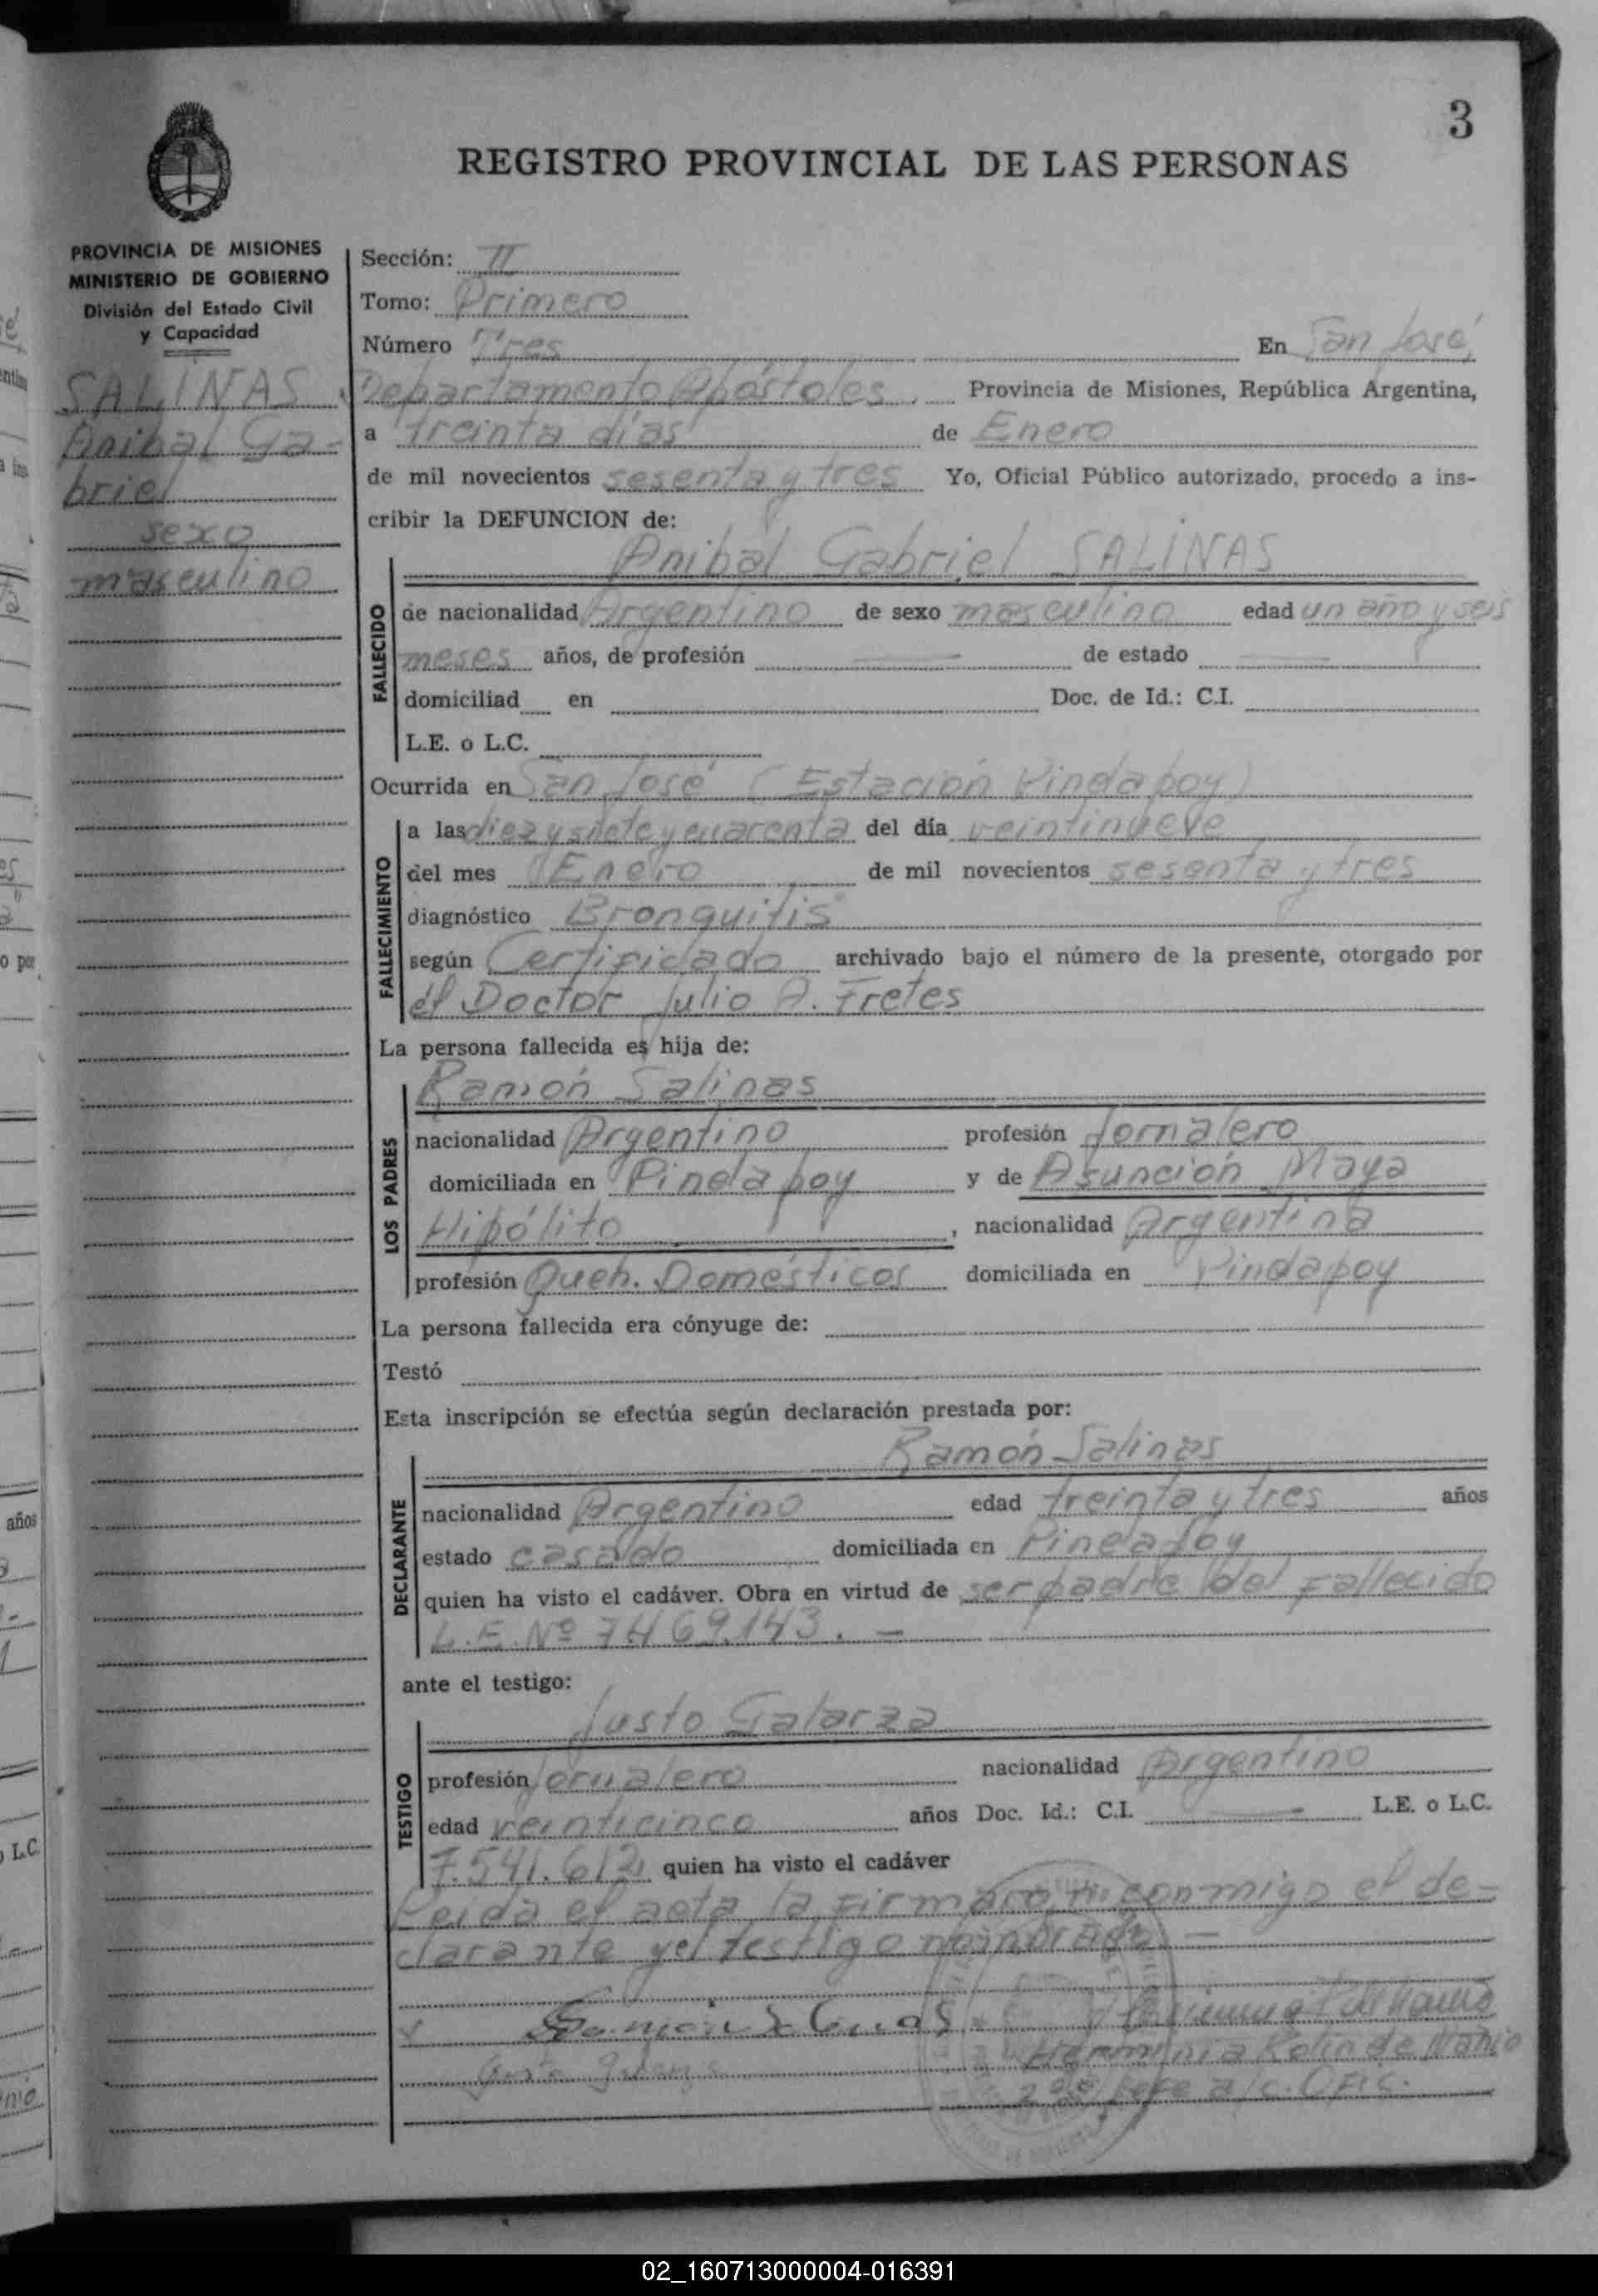 3
REGISTRO PROVINCIAL DE LAS PERSONAS
PROVINCIA DE MISIONES
MINISTERIO DE GOBIERNO
División del Estado Civil
y Capacidad
SALINAS
Anibal Ga-
briel
sexo
masculino
Sección: II
Tomo: Primero
Número Tres En San José,
Departamento Apóstoles, Provincia de Misiones, República Argentina,
a treinta días de Enero
de mil novecientos sesenta y tres Yo, Oficial Público autorizado, procedo a ins-
cribir la DEFUNCION de:
Anibal Gabriel SALINAS
FALLECIDO
de nacionalidad Argentino de sexo masculino edad un año y seis
meses años, de profesión — de estado —
domiciliad en Doc. de Id.: C.I.
L.E. o L.C.
Ocurrida en San José (Estación Pindapoy)
FALLECIMIENTO
a las diez y siete y cuarenta del día veintinueve
del mes Enero de mil novecientos sesenta y tres
diagnóstico Bronquitis
según Certificado archivado bajo el número de la presente, otorgado por
el Doctor Julio A. Fretes
La persona fallecida es hija de:
LOS PADRES
Ramón Salinas
nacionalidad Argentino profesión Jornalero
domiciliada en Pindapoy y de Asunción Maya
Hipólito, nacionalidad Argentina
profesión Queh. Domésticos domiciliada en Pindapoy
La persona fallecida era cónyuge de:
Testó
Esta inscripción se efectúa según declaración prestada por:
Ramón Salinas
DECLARANTE
nacionalidad Argentino edad treinta y tres años
estado casado domiciliada en Pindapoy
quien ha visto el cadáver. Obra en virtud de ser padre del fallecido
L.E. Nº 7469.143. —
ante el testigo:
Justo Galarza
TESTIGO
profesión Jornalero nacionalidad Argentino
edad veinticinco años Doc. Id.: C.I. — L.E. o L.C.
7.541.612 quien ha visto el cadáver
Leida el acta la firmaron conmigo el de-
clarante y el testigo nombrado —
Ramón Salinas
Herminia de
Justo Galarza
años
L.C.
02_160713000004-016391